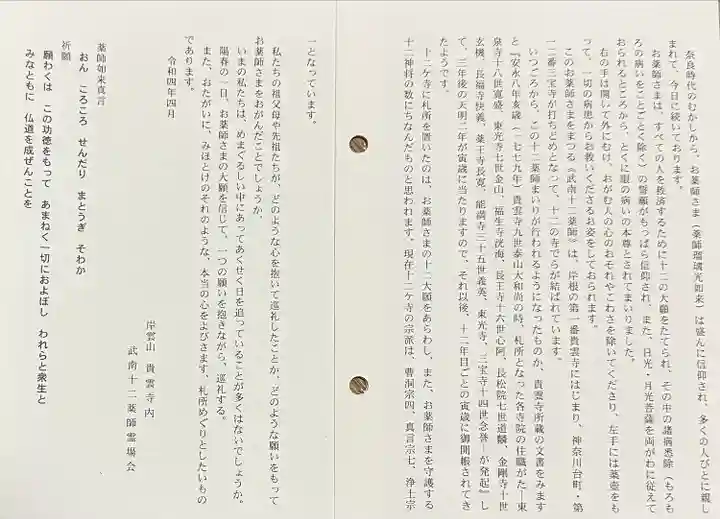 奈良時代のむかしから、お薬師さま（薬師瑠璃光如来）は盛んに信仰され、多くの人びとに親し
まれて、今日に続いております。
お薬師さまは、すべての人を救済するために十二の大願をたてられ、その中の諸病悉除（もろも
ろの病いをことごとく除く）の誓願がもっぱら信仰され、また、日光・月光菩薩を両がわに従えて
おられるところから、とくに眼の病いの本尊とされてまいりました。
右の手は開いて外にむけ、おがむ人の心のおそれやこわさを除いてくださり、左手には薬壷をも
って、一切の病患からお救いくださるお姿をしておられます。
このお薬師さまをまつる《武南十二薬師》は、岸根の第一番貴雲寺にはじまり、神奈川台町・第
十二番三宝寺が打ちどめとなって、十二の寺でらが結ばれています。
いつごろから、この十二薬師まいりが行われるようになったものか、貴雲寺所蔵の文書をみます
と『安永八年亥歳（一七七九年）貴雲寺九世泰山大和尚の時、札所となった各寺院の住職がた―東
泉寺十八世寛盛、東光寺七世金山、福生寺洸海、長王寺十六世心阿、長松院七世道麟、金剛寺十世
玄機、長福寺快義、薬王寺長寛、能満寺三十五世義英、東光寺、三宝寺十四世念誉―が発起』し
て、三年後の天明二年が寅歳に当たりますので、それ以後、十二年目ごとの寅歳に御開帳されてき
たようです。
十二ケ寺に札所を置いたのは、お薬師さまの十二大願をあらわし、また、お薬師さまを守護する
十二神将の数にちなんだものと思われます。現在十二ケ寺の宗派は、曹洞宗四、真言宗七、浄土宗
一となっています。
私たちの祖父母や先祖たちが、どのような心を抱いて巡礼したことか、どのような願いをもって
お薬師さまをおがんだことでしょうか。
いまの私たちは、めまぐるしい中にあってあくせく日を追っていることが多くはないでしょうか。
陽春の一日、お薬師さまの大願を信じて、一つの願いを抱きながら、巡礼する。
また、おたがいに、みほとけのそれのような、本当の心をよびさます、札所めぐりとしたいもの
であります。
令和四年四月
岸雲山　貴雲寺内
武南十二薬師霊場会
薬師如来真言
おん　ころころ　せんだり　まとうぎ　そわか
祈願
願わくは　この功徳をもって　あまねく一切におよぼし　われらと衆生と
みなともに　仏道を成ぜんことを